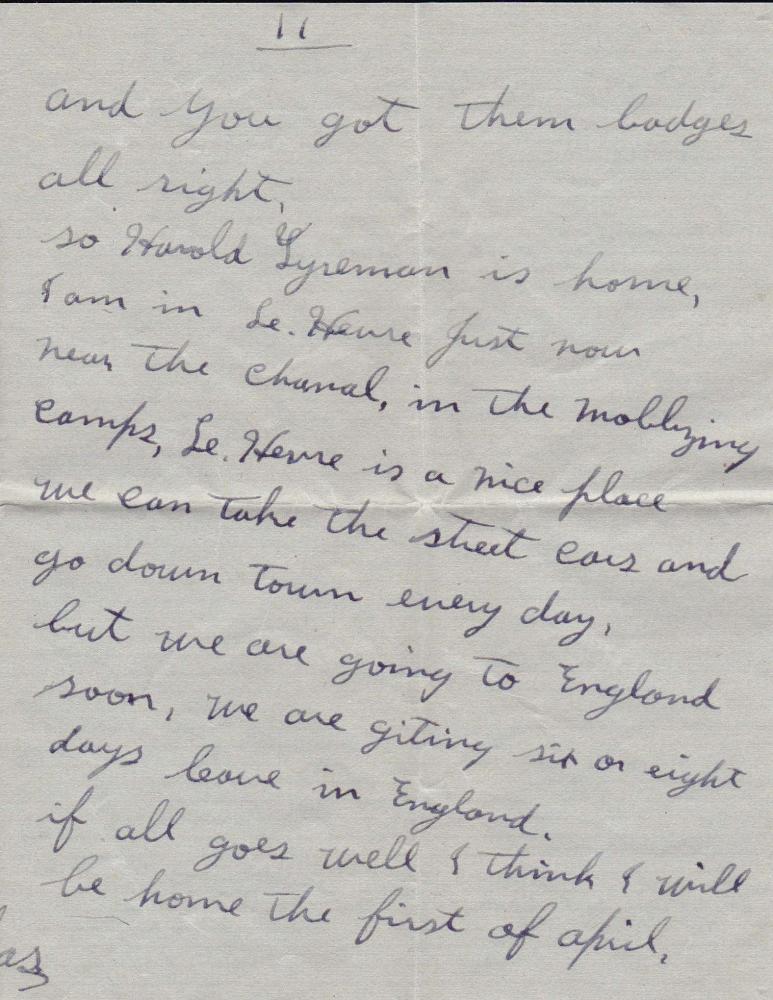 11
and you got them badges
all right,
so Harold Lyreman is home,
I am in Le. Hevre just now
near the chanal, in the moblizing
camps, Le. Hevre is a nice place
we can take the street cars and
go down town every day,
but we are going to England
soon, we are giting six or eight
days leave in England.
if all goes well I think I will
be home the first of april,